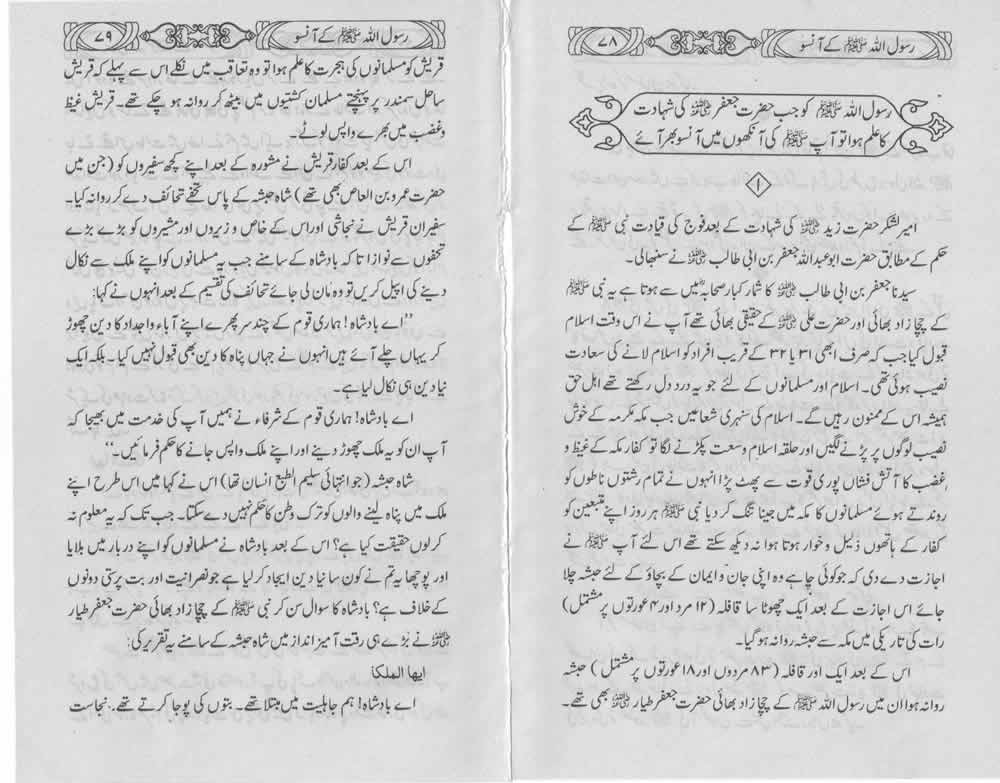 رسول اللہ ﷺ کے آنسو
۷۸
رسول اللہ ﷺ کو جب حضرت جعفر ؓ کی شہادت
کا علم ہوا تو آپ ﷺ کی آنکھوں میں آنسو بھر آئے
۱
امیر لشکر حضرت زید ؓ کی شہادت کے بعد فوج کی قیادت نبی ﷺ کے
حکم کے مطابق حضرت ابو عبداللہ جعفر بن ابی طالب ؓ نے سنبھالی۔
سیدنا جعفر بن ابی طالب ؓ کا شمار کبار صحابہؓ میں سے ہوتا ہے یہ نبی ﷺ
کے چچا زاد بھائی اور حضرت علی ؓ کے حقیقی بھائی تھے آپ نے اس وقت اسلام
قبول کیا جب کہ صرف ابھی ۳۱ یا ۳۲ کے قریب افراد کو اسلام لانے کی سعادت
نصیب ہوئی تھی۔ اسلام اور مسلمانوں کے لئے جو یہ درد دل رکھتے تھے اہل حق
ہمیشہ اس کے ممنون رہیں گے۔ اسلام کی سنہری شعاعیں جب مکہ مکرمہ کے خوش
نصیب لوگوں پر پڑنے لگیں اور حلقہ اسلام وسعت پکڑنے لگا تو کفار مکہ کے غیظ و
غضب کا آتش فشاں پوری قوت سے پھٹ پڑا انہوں نے تمام رشتوں ناطوں کو
روندتے ہوئے مسلمانوں کا مکہ میں جینا تنگ کر دیا نبی ﷺ ہر روز اپنے متبعین کو
کفار کے ہاتھوں ذلیل و خوار ہوتا ہوا نہ دیکھ سکتے تھے اس لئے آپ ﷺ نے
اجازت دے دی کہ جو کوئی چاہے وہ اپنی جان و ایمان کے بچاؤ کے لئے حبشہ چلا
جائے اس اجازت کے بعد ایک چھوٹا سا قافلہ (۱۲ مرد اور ۴ عورتوں پر مشتمل)
رات کی تاریکی میں مکہ سے حبشہ روانہ ہو گیا۔
اس کے بعد ایک اور قافلہ (۸۳ مردوں اور ۱۸ عورتوں پر مشتمل) حبشہ
روانہ ہوا ان میں رسول اللہ ﷺ کے چچا زاد بھائی حضرت جعفر طیار ؓ بھی تھے۔
رسول اللہ ﷺ کے آنسو
۷۹
قریش کو مسلمانوں کی ہجرت کا علم ہوا تو وہ تعاقب میں نکلے اس سے پہلے کہ قریش
ساحل سمندر پر پہنچتے مسلمان کشتیوں میں بیٹھ کر روانہ ہو چکے تھے۔ قریش غیظ
و غضب میں بھرے واپس لوٹے۔
اس کے بعد کفار قریش نے مشورہ کے بعد اپنے کچھ سفیروں کو (جن میں
حضرت عمرو بن العاص بھی تھے) شاہ حبشہ کے پاس تحفے تحائف دے کر روانہ کیا۔
سفیران قریش نے نجاشی اور اس کے خاص و زیروں اور مشیروں کو بڑے بڑے
تحفوں سے نوازا تا کہ بادشاہ کے سامنے جب یہ مسلمانوں کو اپنے ملک سے نکال
دینے کی اپیل کریں تو وہ مان لی جائے تحائف کی تقسیم کے بعد انہوں نے کہا:
”اے بادشاہ! ہماری قوم کے چند سر پھرے اپنے آباء واجداد کا دین چھوڑ
کر یہاں چلے آئے ہیں انہوں نے جہاں پناہ کا دین بھی قبول نہیں کیا۔ بلکہ ایک
نیا دین ہی نکال لیا ہے۔
اے بادشاہ! ہماری قوم کے شرفاء نے ہمیں آپ کی خدمت میں بھیجا کہ
آپ ان کو یہ ملک چھوڑ دینے اور اپنے ملک واپس جانے کا حکم فرمائیں۔“
شاہ حبشہ (جو انتہائی سلیم الطبع انسان تھا) اس نے کہا میں اس طرح اپنے
ملک میں پناہ لینے والوں کو ترک وطن کا حکم نہیں دے سکتا۔ جب تک کہ یہ معلوم نہ
کر لوں حقیقت کیا ہے؟ اس کے بعد بادشاہ نے مسلمانوں کو اپنے دربار میں بلایا
اور پوچھا یہ تم نے کون سا نیا دین ایجاد کر لیا ہے جو نصرانیت اور بت پرستی دونوں
کے خلاف ہے؟ بادشاہ کا سوال سن کر نبی ﷺ کے چچا زاد بھائی حضرت جعفر طیار
ؓ نے بڑے ہی رقت آمیز انداز میں شاہ حبشہ کے سامنے یہ تقریر کی:
ایھا الملکا
اے بادشاہ! ہم جاہلیت میں مبتلا تھے۔ بتوں کی پوجا کرتے تھے۔ نجاست